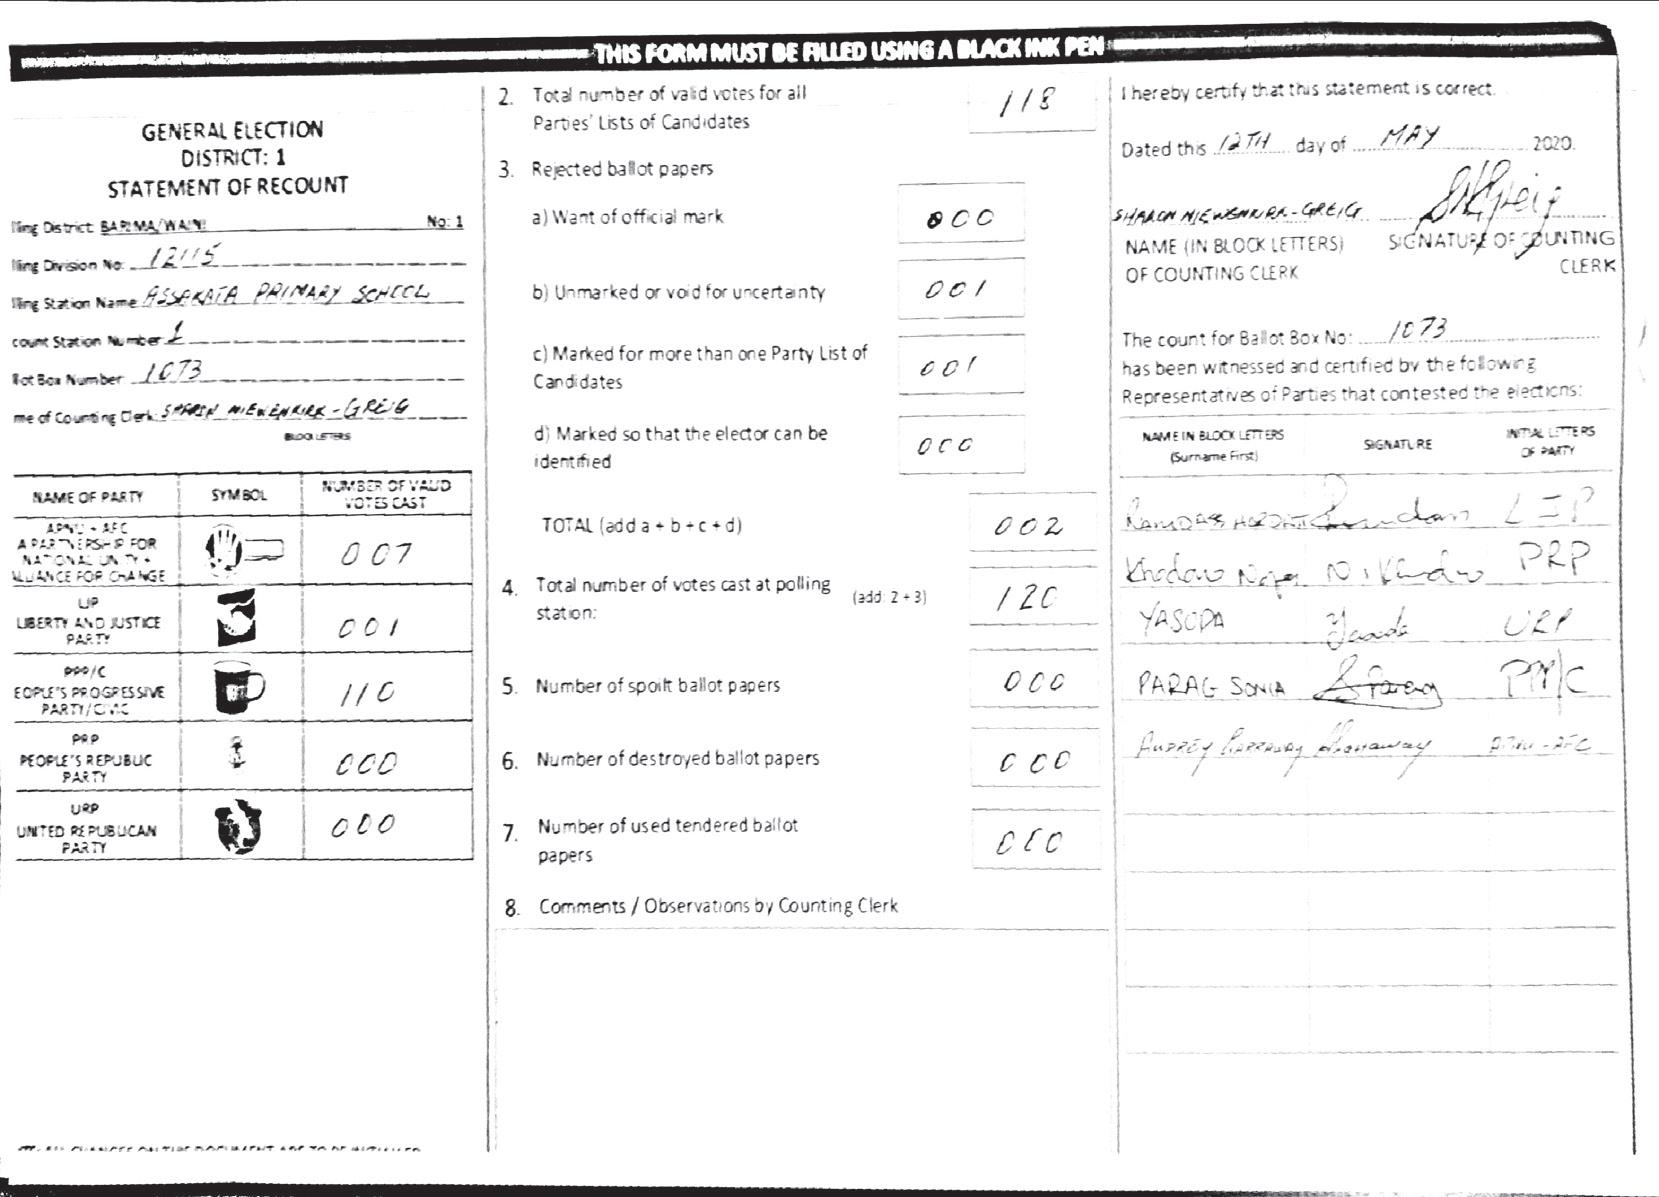 THIS FORM MUST BE FILLED USING A BLACK INK PEN
GENERAL ELECTION
DISTRICT: 1
STATEMENT OF RECOUNT
lling District: BARIMA/WAINI No: 1
lling Division No: 12115
lling Station Name: ASSAKATA PRIMARY SCHOOL
count Station Number 1
llot Box Number 1073
me of Counting Clerk: SHARON NIEWENKIRK-GREIG
BLOCK LETTERS
NAME OF PARTY SYMBOL NUMBER OF VALID
VOTES CAST
APNU + AFC
A PARTNERSHIP FOR
NATIONAL UNITY +
ALLIANCE FOR CHANGE
007
LJP
LIBERTY AND JUSTICE
PARTY
001
PPP/C
EOPLE'S PROGRESSIVE
PARTY/CIVIC
110
PRP
PEOPLE'S REPUBLIC
PARTY
000
URP
UNITED REPUBLICAN
PARTY
000
ALL CHANGES ON THIS DOCUMENT ARE TO BE INITIALLED
2. Total number of valid votes for all
Parties' Lists of Candidates
118
3. Rejected ballot papers
a) Want of official mark 000
b) Unmarked or void for uncertainty 001
c) Marked for more than one Party List of
Candidates
001
d) Marked so that the elector can be
identified
000
TOTAL (add a + b + c + d) 002
4. Total number of votes cast at polling
station:
(add: 2 + 3) 120
5. Number of spoilt ballot papers 000
6. Number of destroyed ballot papers 000
7. Number of used tendered ballot
papers
000
8. Comments / Observations by Counting Clerk
I hereby certify that this statement is correct.
Dated this 12TH day of MAY 2020.
SHARON NIEWENKIRK-GREIG SNGreig
NAME (IN BLOCK LETTERS) SIGNATURE OF COUNTING
OF COUNTING CLERK CLERK
The count for Ballot Box No: 1073
has been witnessed and certified by the following
Representatives of Parties that contested the elections:
NAME IN BLOCK LETTERS
(Surname First)
SIGNATURE
INITIAL LETTERS
OF PARTY
RAMDASS LJP
PRP
YASODA Yasoda URP
PARAG SONIA S Parag PPP/C
AUDREY APNU-AFC